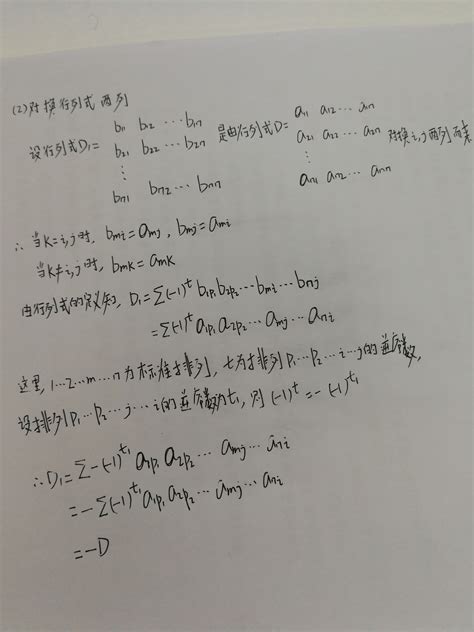 (2)对换行列式两列
设行列式D₁= b₁₁ b₁₂ ⋯ b₁ₙ 是由行列式D= a₁₁ a₁₂ ⋯ a₁ₙ 对换i,j两列而来
b₂₁ b₂₂ ⋯ b₂ₙ a₂₁ a₂₂ ⋯ a₂ₙ
⋮ ⋮
bₙ₁ bₙ₂ ⋯ bₙₙ aₙ₁ aₙ₂ ⋯ aₙₙ
∴ 当k=i,j时, b_{mi}=a_{mj}, b_{mj}=a_{mi}
当k≠i,j时, b_{mk}=a_{mk}
由行列式的定义知, D₁=∑(-1)^t b_{1p₁} b_{2p₂} ⋯ b_{mi} ⋯ b_{nj}
=∑(-1)^t a_{1p₁} a_{2p₂} ⋯ a_{mj} ⋯ a_{ni}
这里, 1⋯2⋯m⋯n为标准排列, t为排列p₁⋯p₂⋯i⋯j的逆序数,
设排列p₁⋯p₂⋯j⋯i的逆序数为t₁, 则 (-1)^t=-(-1)^{t₁}
∴D₁=∑-(-1)^{t₁} a_{1p₁} a_{2p₂} ⋯ a_{mj} ⋯ a_{ni}
=-∑(-1)^{t₁} a_{1p₁} a_{2p₂} ⋯ a_{mj} ⋯ a_{ni}
=-D